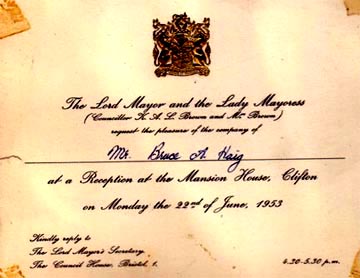 The Lord Mayor and the Lady Mayoress
(Councillor K. A. L. Brown and Mrs Brown)
request the pleasure of the company of
Mr. Bruce A Haig
at a Reception at the Mansion House, Clifton
on Monday the 22nd of June, 1953
Kindly reply to
The Lord Mayor's Secretary,
The Council House, Bristol, 1.
4.30-5.30 p.m.